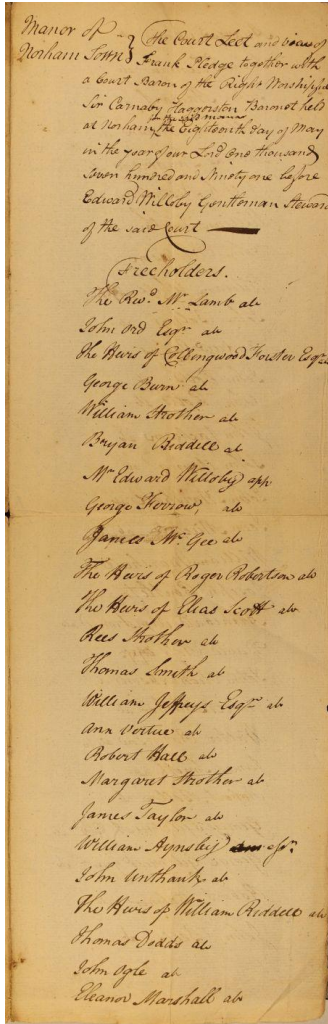 Manor of
Norham Town } The Court Leet and view of
Frank Pledge together with
a Court Baron of the Right Worshipful
Sir Carnaby Haggerston Baronet held
in the said manor
at Norham the Eighteenth Day of May
in the year of our Lord One thousand
Seven hundred and Ninety one before
Edward Willoby Gentleman Steward
of the said Court
Freeholders.
The Revd. Mr. Lamb ab
John Ord Esqr. ab
The Heirs of Collingwood Forster Esqr. ab
George Burn ab
William Strother ab
Bryan Biddell ab
Mr Edward Willoby app
George Ferrow, ab
James Mc. Gee ab
The Heirs of Roger Robertson ab
The Heirs of Elias Scott ab
Rees Strother ab
Thomas Smith ab
William Jeffreys Esqr. ab
Ann Vertue ab
Robert Hall ab
Margaret Strother ab
James Taylor ab
William Aynsley
John Unthank ab
The Heirs of William Riddell ab
Thomas Dodds ab
John Ogle ab
Eleanor Marshall ab